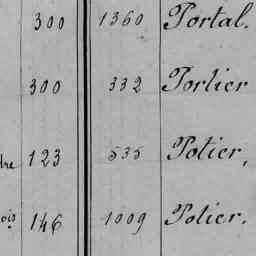 300 1360 Portal.
300 332 Portier
123 535 Potier,
146 1009 Potier.